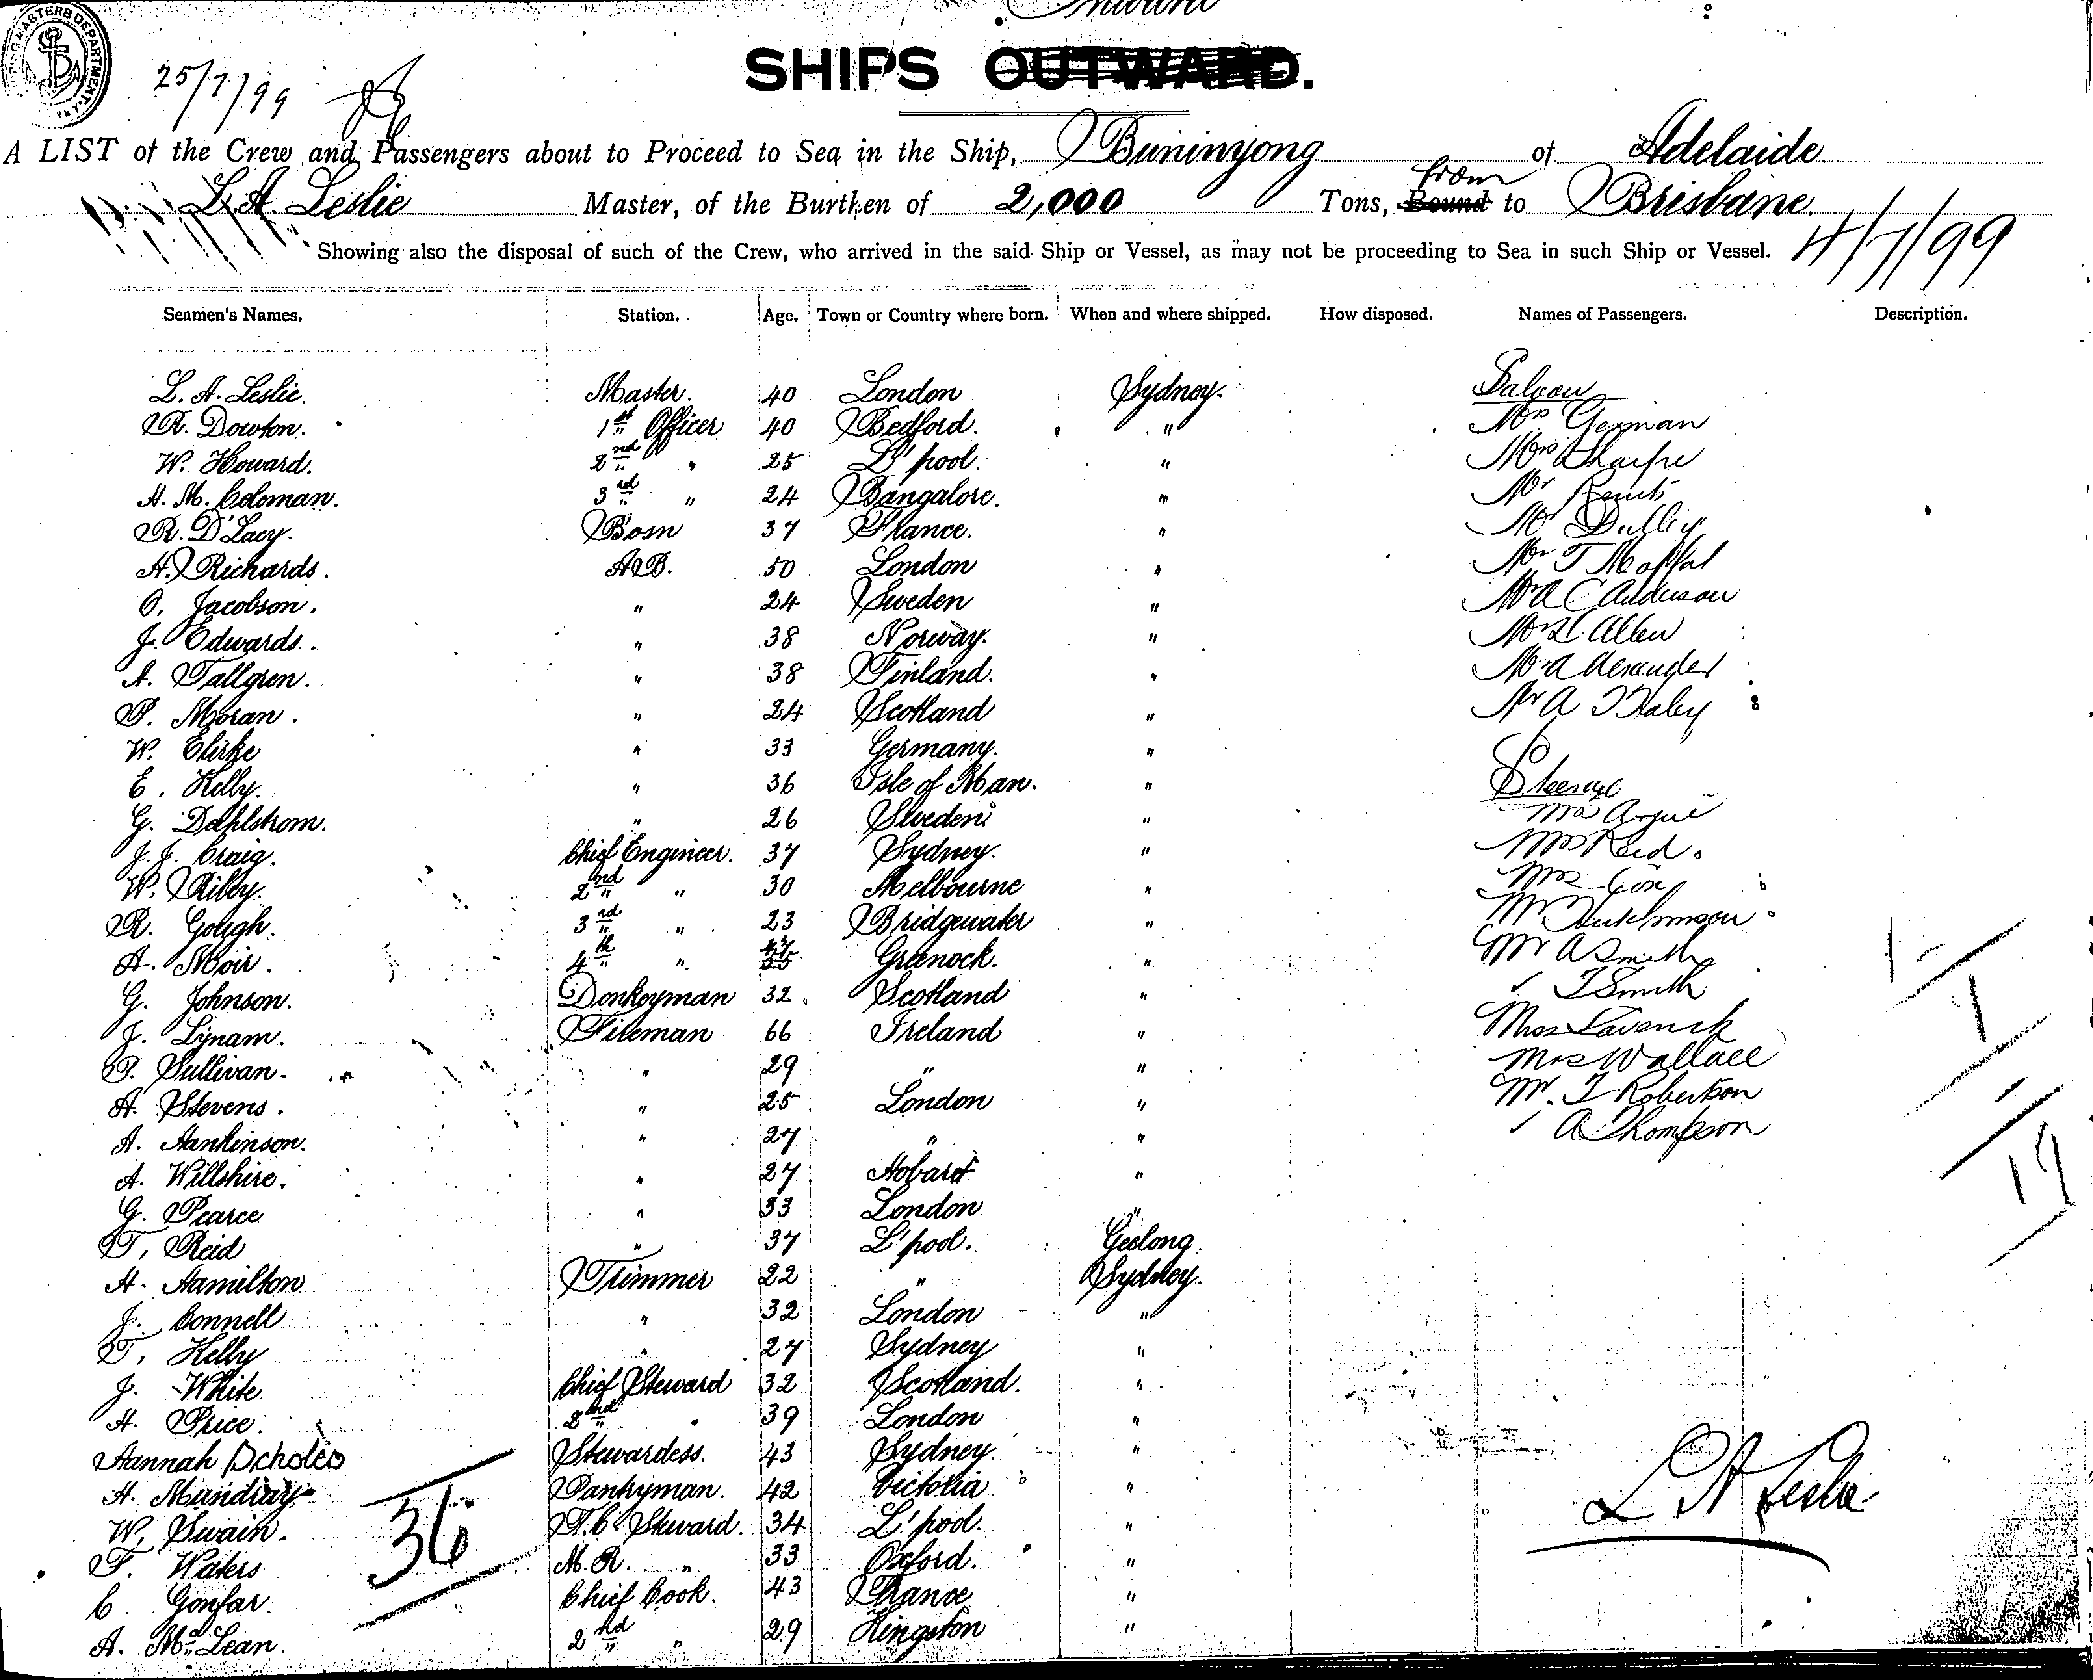 Inward
SHIPS OUTWARD.
25/7/99
A LIST of the Crew and Passengers about to Proceed to Sea in the Ship, Buninyong of Adelaide
from
L. A. Leslie Master, of the Burthen of 2,000 Tons, Bound to Brisbane
Showing also the disposal of such of the Crew, who arrived in the said Ship or Vessel, as may not be proceeding to Sea in such Ship or Vessel.
/7/99
Seamen's Names. Station. Age. Town or Country where born. When and where shipped. How disposed. Names of Passengers. Description.
L. A. Leslie. Master. 40 London Sydney. Saloon
R. Dowton. 1st Officer 40 Bedford. " Mrs German
W. Howard. 2nd " 25 L'pool. " Mrs Sharpe
A. M. Coleman. 3rd " 24 Bangalore. " Mr
R. D'Lacy. Bosn 37 France. " Mr
A. Richards. A.B. 50 London " Mr T Moffat
O. Jacobson. " 24 Sweden " Mr A C Anderson
J. Edwards. " 38 Norway. " Allen
A. Tallgren. " 38 Finland. " Alexander
P. Moran. " 24 Scotland " Mr A
W. " 33 Germany. "
E. Kelly. " 36 Isle of Man. " Steerage
G. Dahlstrom. " 26 Sweden " Mrs Argue
J. J. Craig. Chief Engineer. 37 Sydney. " Mrs Reid.
W. Riley. 2nd " 30 Melbourne " Mrs Cox
R. Gough. 3rd " 23 Bridgewater " Mr Hutchinson
A. Moir. 4th " Greenock. " Mr A Smith
G. Johnson. Donkeyman 32. Scotland " T Smith
J. Lynam. Fireman 66 Ireland " Miss
P. Sullivan. " 29 " " Mrs Wallace
A. Stevens. " 25 London " Mr. T Robertson
A. Hankinson. " 27 " " A Thompson
A. Willshire. " 27 Hobart "
G. Pearce " 33 London " 19
T. Reid " 37 L'pool. Geelong.
H. Hamilton Trimmer 22 " Sydney.
J. Connell " 32 London "
T. Kelly " 27 Sydney "
J. White. Chief Steward 32 Scotland. "
A. Price. 2nd " 39 London "
Hannah Scholes Stewardess. 43 Sydney. "
A. Mundray Pantryman. 42 Victoria "
W. Swain. F.C. Steward. 34 L'pool. " L A Leslie
36
F. Waters M.R. " 33 Oxford. "
C. Gonfar. Chief Cook. 43 France "
A. McLean. 2nd " 29 Kingston "